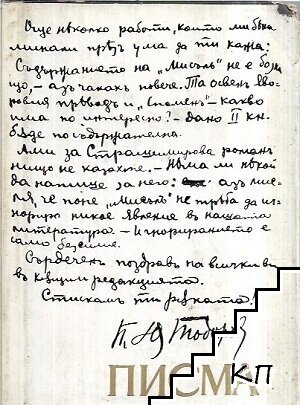 Още няколко работи, които ми бѣха
минали прѣзъ ума да ти кажа:
Съдържанието на „Мисъль" не е богат
що, – азъ чакахъ повече. Та освенъ Яво-
ровия прѣводъ и „Споменъ" – какво
има по интересно? – дано II кн.
бѫде по съдържателна.
Ами за Страшимирова романъ
нищо не казахте. – Нѣма ли нѣкой
да напише за него: азъ мис-
ля, че поне „Мисъль" не трѣба да иг-
норира никое явление въ нашата
литература – Игнорирането е
само безсилие.
Сърдеченъ поздравъ на всички ви
въ кѫщи и редакцията.
Стискамъ ти рѫката!
П. Ю. Тодоровъ
ПИСМА
КП